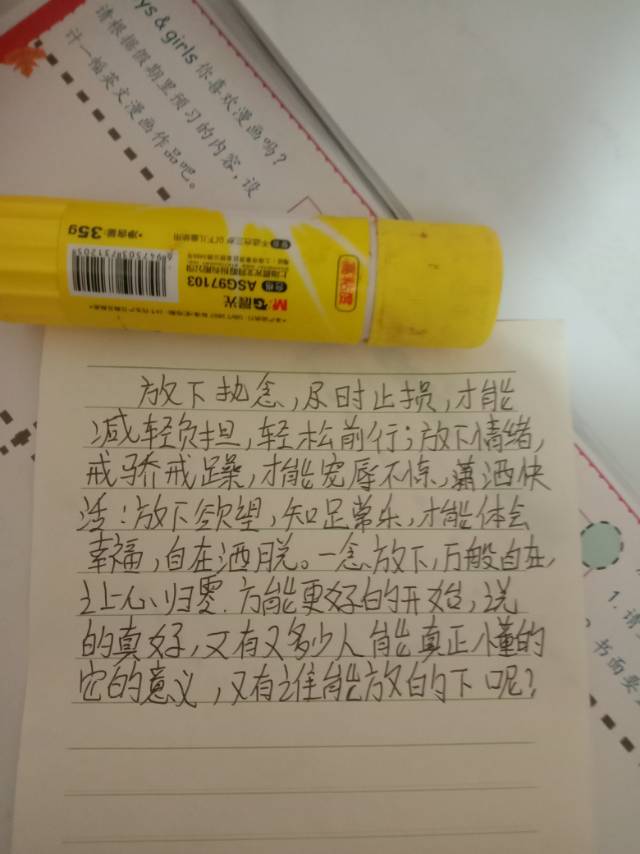 ys & girls 你喜欢漫画吗？
请根据假期里预习的内容，设
计一幅英文漫画作品吧。
•净含量:35g
6947503731205
ASG97103
M&G晨光
高粘度
放下执念，及时止损，才能
减轻负担，轻松前行；放下情绪，
戒骄戒躁，才能宠辱不惊，潇洒快
活：放下欲望，知足常乐，才能体会
幸福，自在洒脱。一念放下，万般自在，
让心归零.方能更好的开始，说
的真好，又有又多少人能真正懂的
它的意义，又有谁能放的下呢？
1.请
书面要